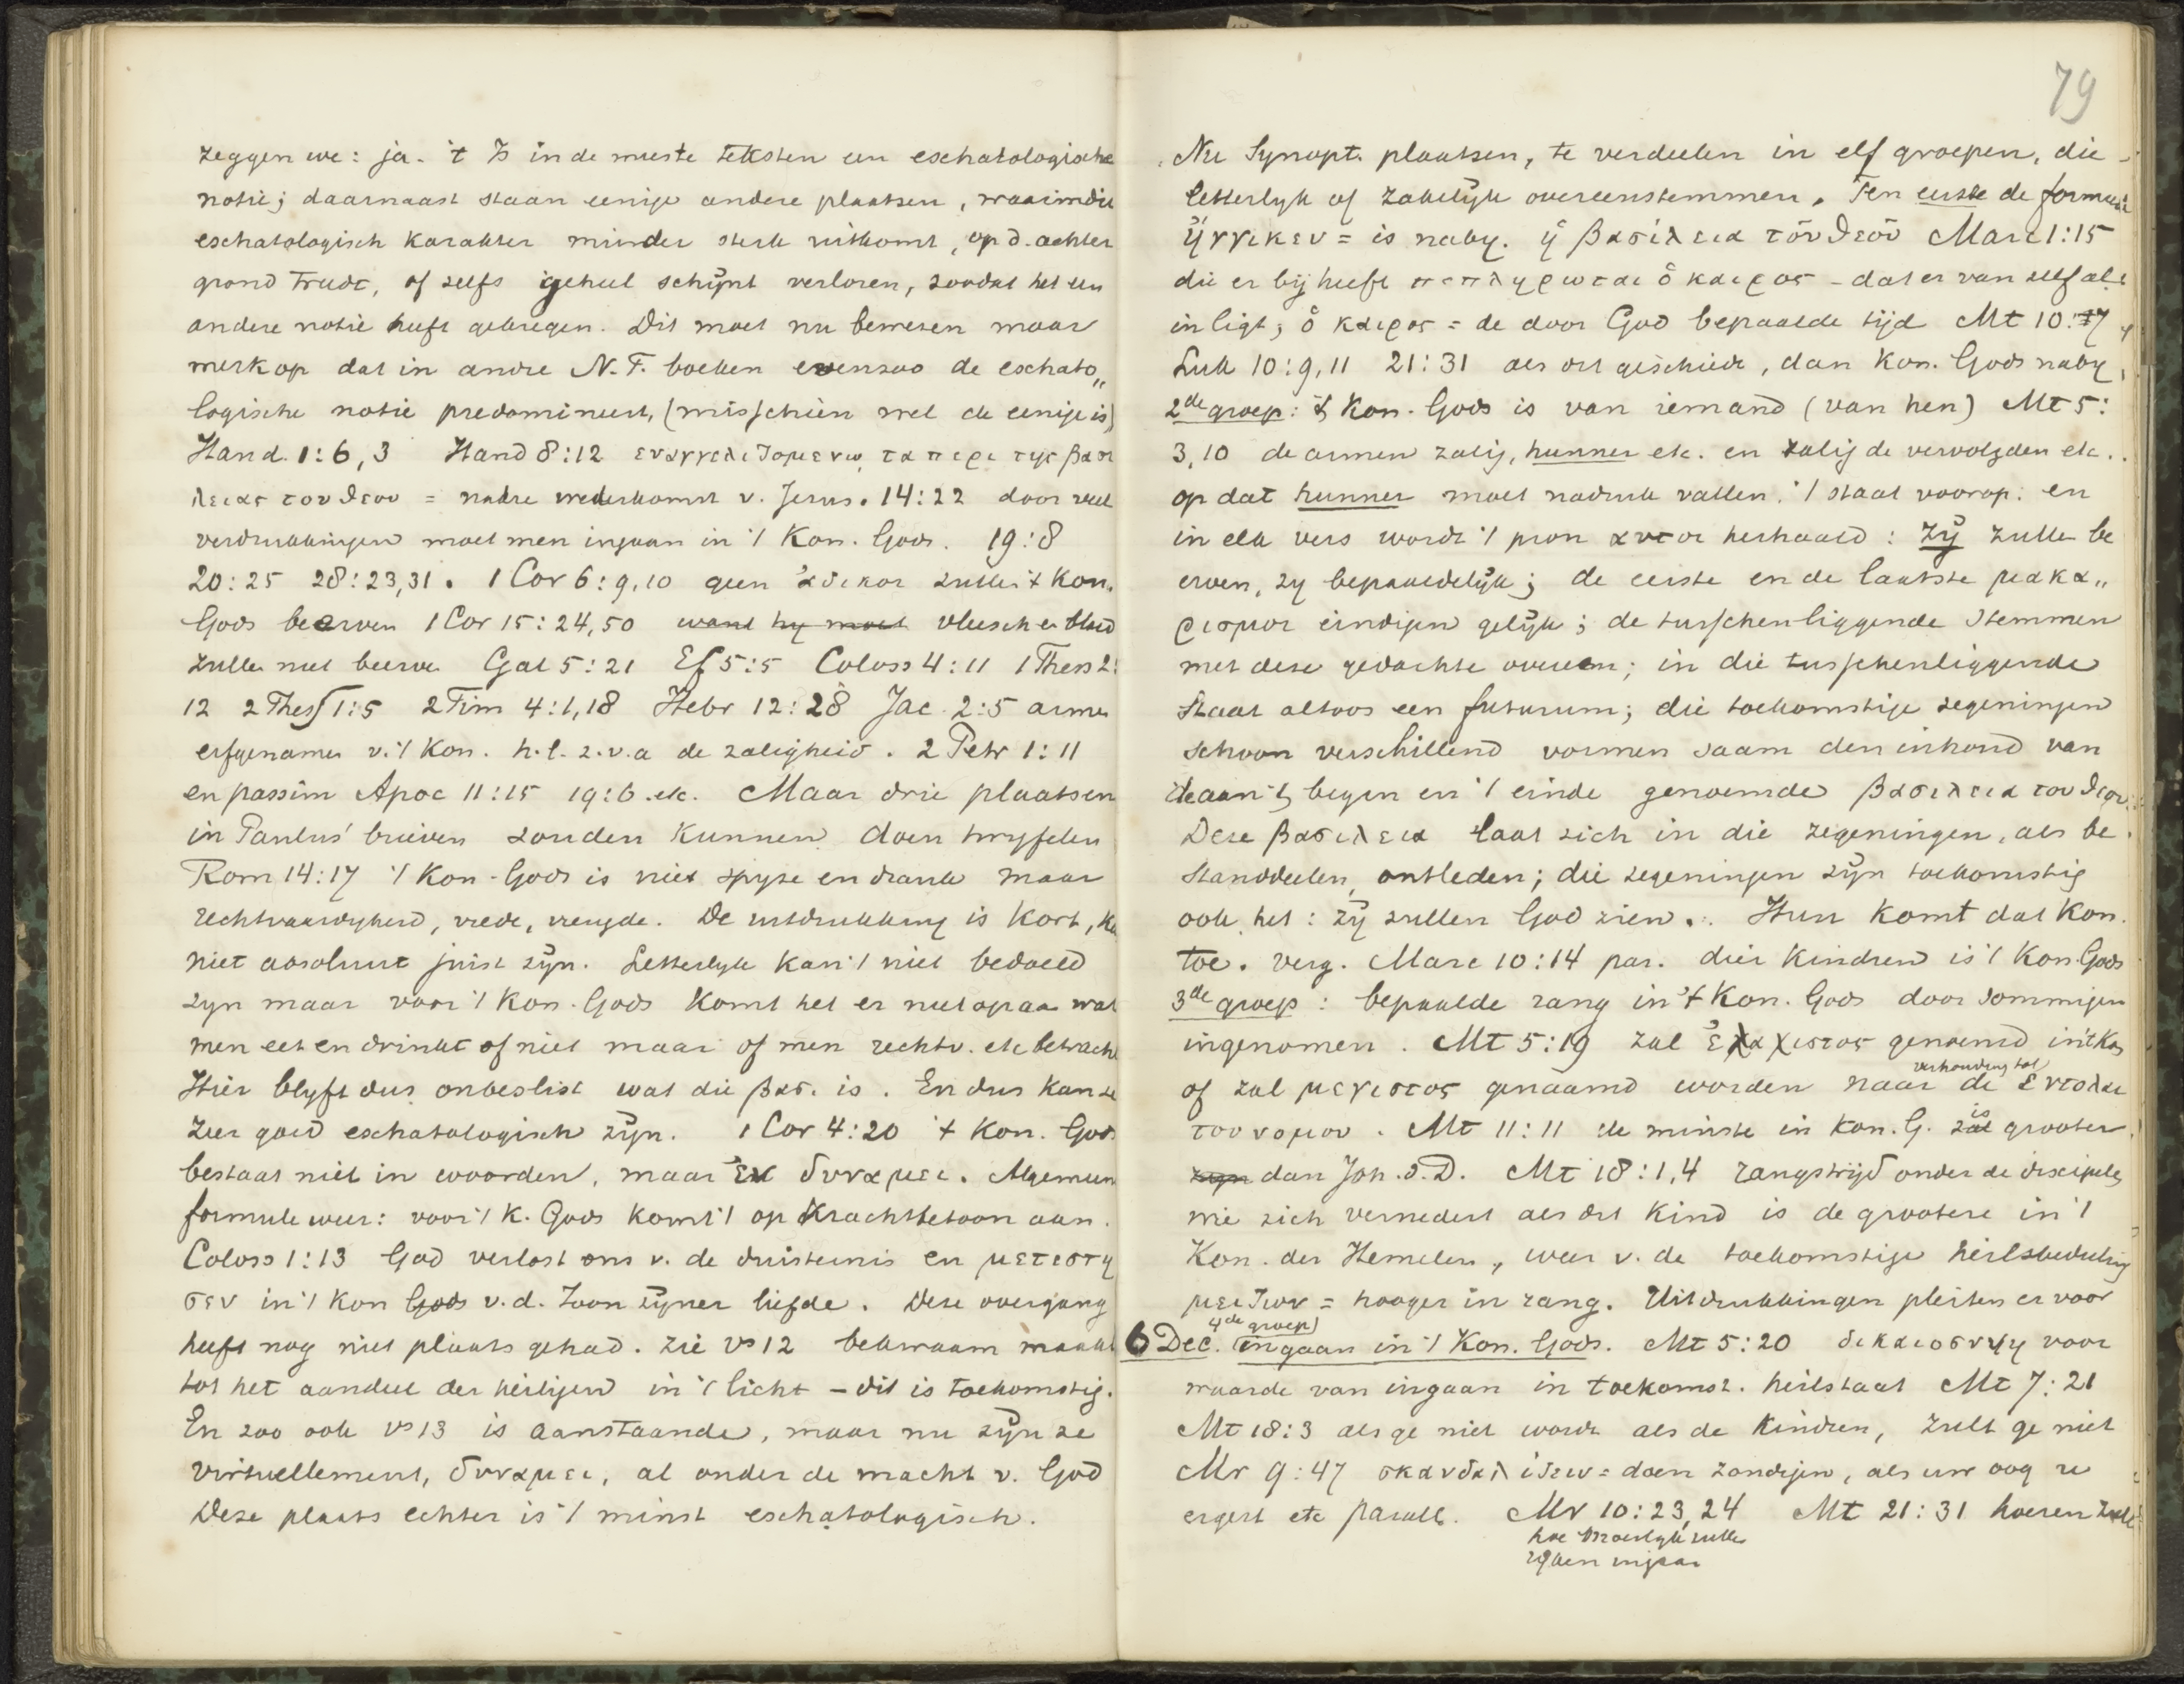 zeggen we: ja. 't Is in de meeste teksten een eschatologische
notie; daarnaast staan eenige andere plaatsen, waarin die
eschatologisch karakter minder sterk uitkomt, op d. achter
grond treedt, of zelfs geheel schijnt verloren, zoodat het een
andere notie heeft gekregen. Dit moet nu bewezen maar
merk op dat in andre N.T. boeken evenzoo de eschato„
logische notie predomineert, (misschien wel de eenige is)
Hand. 1:6,3 Hand 8:12 ευαγγελιζομενω τα περι της βασι
λειας του θεου = nadre wederkomst v. Jezus. 14:22 door veel
verdrukkingen moet men ingaan in 't Kon. Gods. 19:8
20:25 28:23,31. 1 Cor 6:9,10 geen ἀδικοι zullen 't Kon.
Gods beerven 1 Cor 15:24,50 want hy moet vleesch en bloed
zullen niet beerve Gal 5:21 Ef 5:5 Coloss 4:11 1 Thess 2:
12 2 Thess 1:5 2 Tim 4:1,18 Hebr 12:28 Jac. 2:5 armen
erfgenamen v. 't Kon. h.l. z.v.a de zaligheid. 2 Petr 1:11
en passim Apoc 11:15 19:6 .etc. Maar drie plaatsen
in Paulus' brieven zouden kunnen doen twyfelen
Rom 14:17 't Kon. Gods is niet spyze en drank maar
rechtvaardigheid, vrede, vreugde. De uitdrukking is kort, ka
niet absoluut juist zijn. Letterlyk kan 't niet bedoeld
zyn maar voor 't Kon. Gods komt het er niet op aan wat
men eet en drinkt of niet maar of men rechtv. etc betracht
Hier blyft dus onbeslist wat die βας. is. En dus kan ze
zeer goed eschatologisch zijn. 1 Cor 4:20 't Kon. Gods
bestaat niet in woorden, maar ἐν δυναμει. Algemeen
formule weer: voor 't K. Gods komt 't op krachtbetoon aan.
Coloss 1:13 God verlost ons v. de duisternis en μετεστη
σεν in 't Kon Gods v.d. Zoon zijner liefde. Deze overgang
heeft nog niet plaats gehad. Zie vs 12 bekwaam maakt
tot het aandeel der heiligen in 't licht – dit is toekomstig.
En zoo ook vs 13 is aanstaande, maar nu zijn ze
virtuellement, δυναμει, al onder de macht v. God
Deze plaats echter is 't minst eschatologisch.
79
Nu Synopt. plaatsen, te verdeelen in elf groepen, die
letterlyk of zakelijk overeenstemmen. Ten eerste de formule
ἤγγικεν = is naby. ἡ βασίλεια τοῦ θεοῦ Marc 1:15
die er bij heeft πεπληρωται ὁ καιρος – dat er van zelf al
in ligt; ὁ καιρος = de door God bepaalde tijd Mt 10:7
Luk 10:9,11 21:31 als dit geschiedt, dan Kon. Gods naby,
2de groep: 't Kon. Gods is van iemand (van hen) Mt 5:
3,10 de armen zalig, hunner etc. en zalig de vervolgden etc.
op dat hunner moet nadruk vallen. 't staat voorop: en
in elk vers wordt 't pron αυτοι herhaald: Zij zullen be
erven, zy bepaaldelijk; de eerste en de laatste μακα„
ρισμοι eindigen gelijk; de tusschenliggende stemmen
met deze gedachte overeen; in die tusschenliggende
staat altoos een futurum; die toekomstige zegeningen
schoon verschillend vormen saam den inhoud van
de aan 't begin en 't einde genoemde βασιλεια του θεου.
Deze βασιλεια laat zich in die zegeningen, als be
standdeelen, ontleden; die zegeningen zijn toekomstig
ook het: zij zullen God zien. Hun komt dat Kon.
toe. verg. Marc 10:14 par. dier kindren is 't Kon. Gods
3de groep: bepaalde rang in 't Kon. Gods door sommigen
ingenomen. Mt 5:19 zal ἐλαχιστος genoemd in 't Kon
of zal μεγιστος genaamd worden naar verhouding tot de εντολαι
του νομου. Mt 11:11 de minste in Kon. G. zal is grooter
zyn dan Joh. d. D. Mt 18:1,4 rangstrijd onder de discipelen
wie zich vernedert als dit kind is de grootere in 't
Kon. der Hemelen, weer v. de toekomstige heilsbedeeling
μειζων = hooger in rang. Uitdrukkingen pleiten er voor
6 Dec. 4de groep) ingaan in 't Kon. Gods. Mt 5:20 δικαιοσυνη voor
waarde van ingaan in toekomst. heilstaat Mt 7:21
Mt 18:3 als ge niet wordt als de kindren, zult ge niet
Mr 9:47 σκανδαλιζειν = doen zondigen, als uw oog u
ergert etc parall. Mr 10:23,24 Mt 21:31 hoeren zulle
hoe moeilyk zullen
rijken ingaan